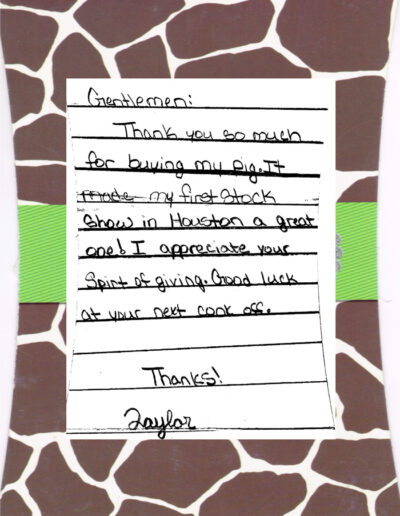 Gentlemen:
Thank you so much
for buying my pig. It
made my first Stock
Show in Houston a great
one! I appreciate your
Spirt of giving. Good luck
at your next cook off.
Thanks!
Taylor